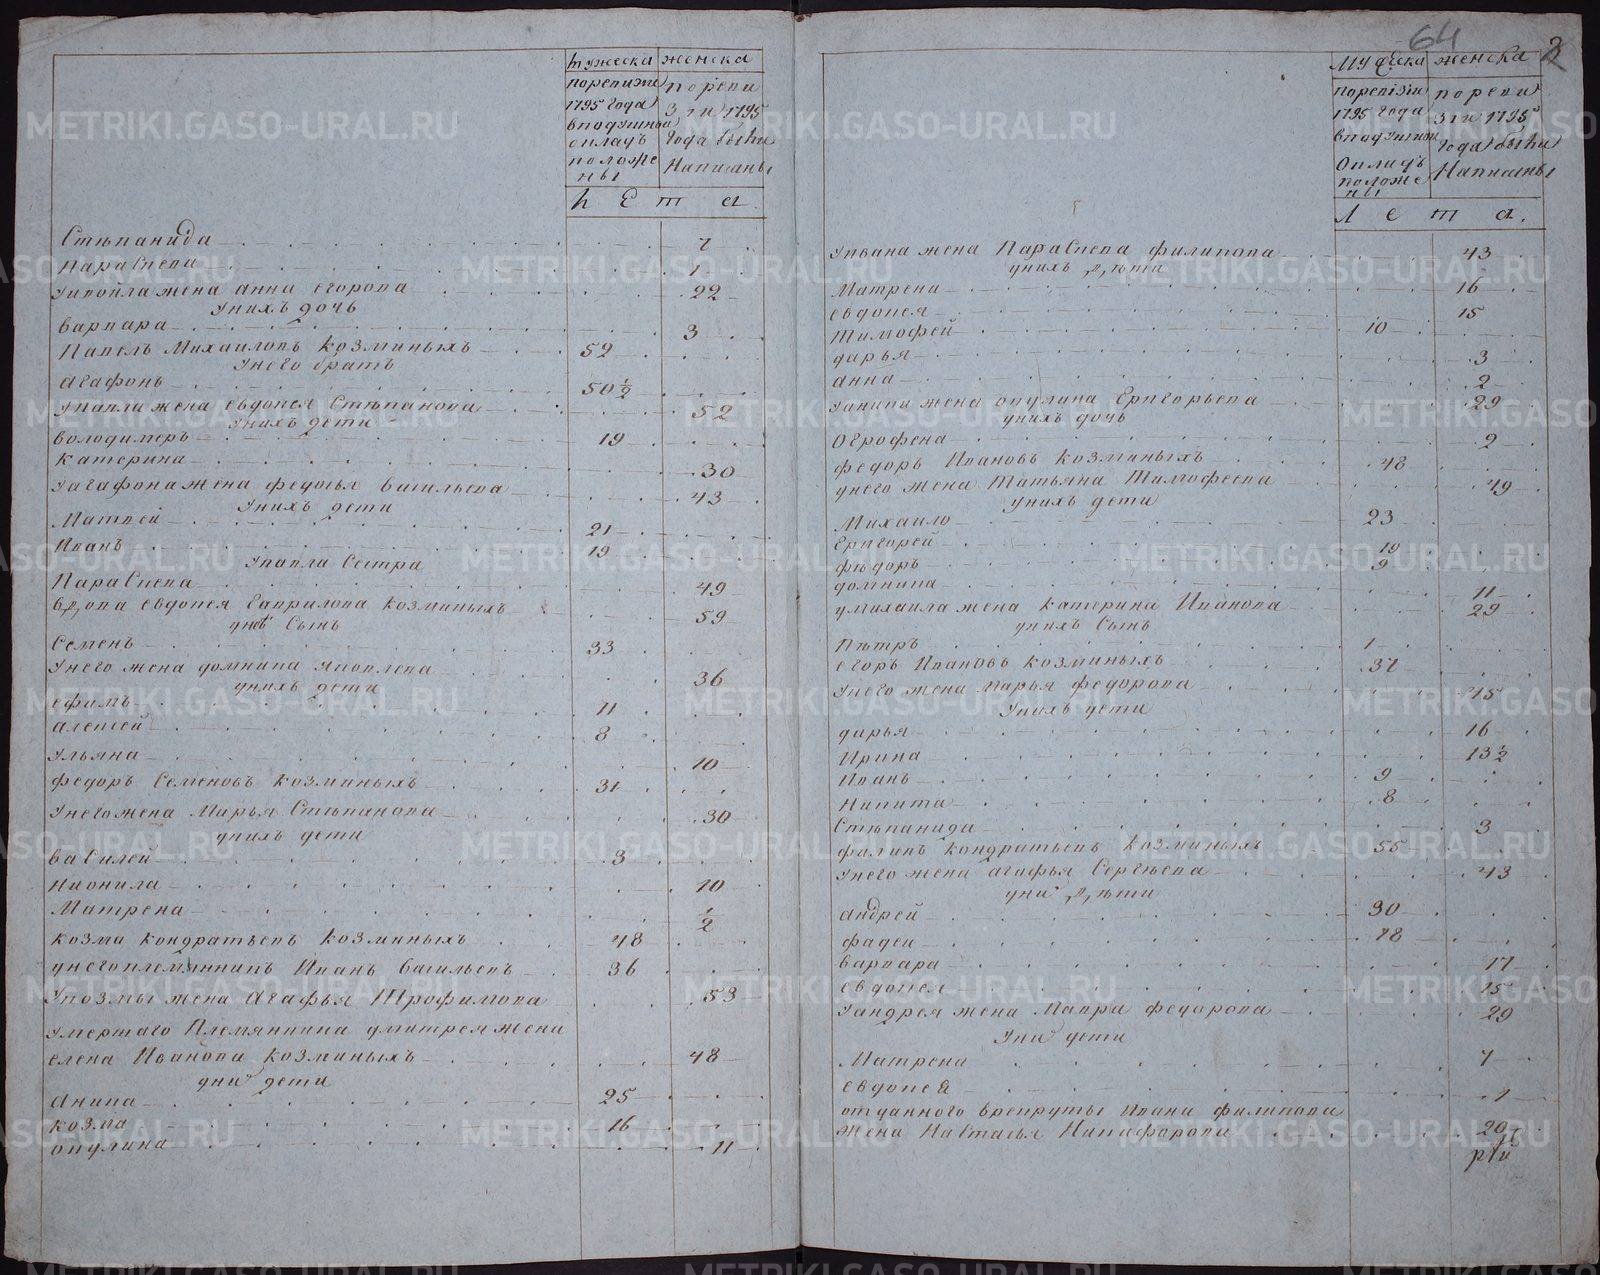 мужеска женска
поревизiи 1795 года в подушной окладъ положены
по реви зiи 1795 года были Написаны
Л е т а.
Стѣпанида 7
Параскева 1
У михайла жена анна егорова 22
У нихъ дочь
варвара 3
Павелъ Михаиловъ козминыхъ 52
У него братъ
агафонъ 50 1/2
У павла жена евдокея Стѣпанова 52
У нихъ дети
володимеръ 19
катерина 30
У агафона жена федосья васильева 43
У нихъ дети
Матвей 21
Иванъ 19
У павла Сестра
Параскева 49
вдова евдокея Гаврилова козминыхъ 59
у неѣ Сынъ
Семенъ 33
У него жена домнина яковлева 36
у нихъ дети
ефимъ 11
алексей 8
Ульяна 10
федоръ Семеновъ козминыхъ 31
У него жена Марья Стѣпанова 30
у нихъ дети
василей 3
Нионила 10
Матрена 1/2
козма кондратьевъ козминыхъ 48
у него племянникъ Иванъ васильевъ 36
У козмы жена Агафья Трофимова 53
Умершаго Племянника дмитрея жена
елена Иванова козминыхъ 48
у ни дети
аника 25
козма 16
окулина 11
64
мужеска женска
поревизiи 1795 года в подушной окладъ положены
по реви зiи 1795 года были Написаны
Л е т а.
У ивана жена Параскева филипова 43
у нихъ дѣти
Матрена 16
евдокея 15
Тимофей 10
дарья 3
анна 2
У аники жена окулина Григорьева 29
у нихъ дочь
Огрофена 2
федоръ Ивановъ козминыхъ 48
у него жена Татьяна Тимофеева 49
У нихъ дети
Михайло 23
Григорей 19
фядоръ 9
домнина 11
у михаила жена катерина Иванова 29
у нихъ Сынъ
Пѣтръ 1
егоръ Ивановъ козминыхъ 37
У него жена Марья федорова 45
У нихъ дети
дарья 16
Ирина 13 1/2
Иванъ 9
Никита 8
Стѣпанида 3
филипъ кондратьевъ козминыхъ 55
У него жена агафья Сергѣева 43
у ни дѣти
андрей 30
фадеи 18
варвара 17
евдокея 15
У андрея жена Мавра федорова 29
У ни дети
Матрена 7
евдокея 1
отданного врекруты Ивана филипова
жена Настасья Никифорова 20
METRIKI.GASO-URAL.RU